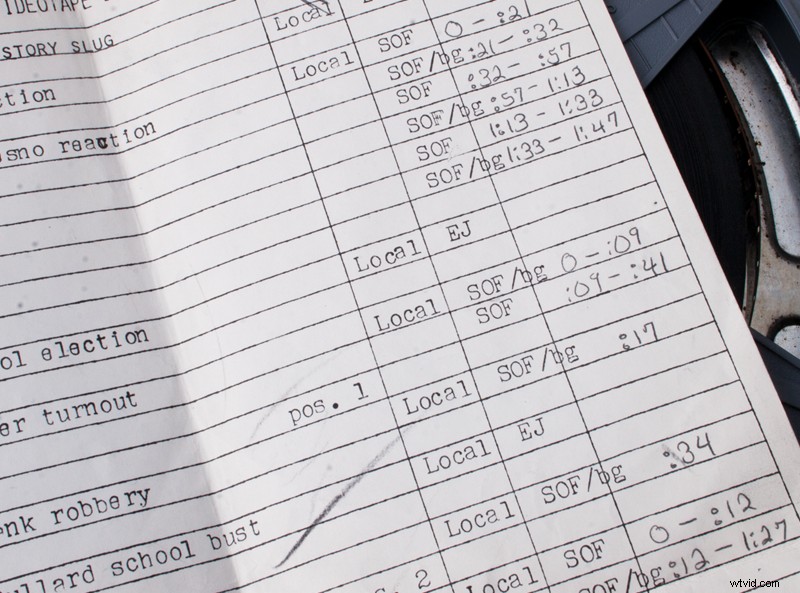 STORY SLUG Local SOF 0 - :21
SOF/bg :21 - :32
Local
SOF :32 - :57
SOF/bg :57 - 1:13
reaction SOF 1:13 - 1:33
SOF/bg 1:33 - 1:47
Local EJ
Local SOF/bg 0 - :09
SOF :09 - :41
election
turnout pos. 1 Local SOF/bg :17
Local EJ
robbery
school bust Local SOF/bg :34
2 Local SOF 0 - :12
SOF/bg :12 - 1:27
wtvid.com